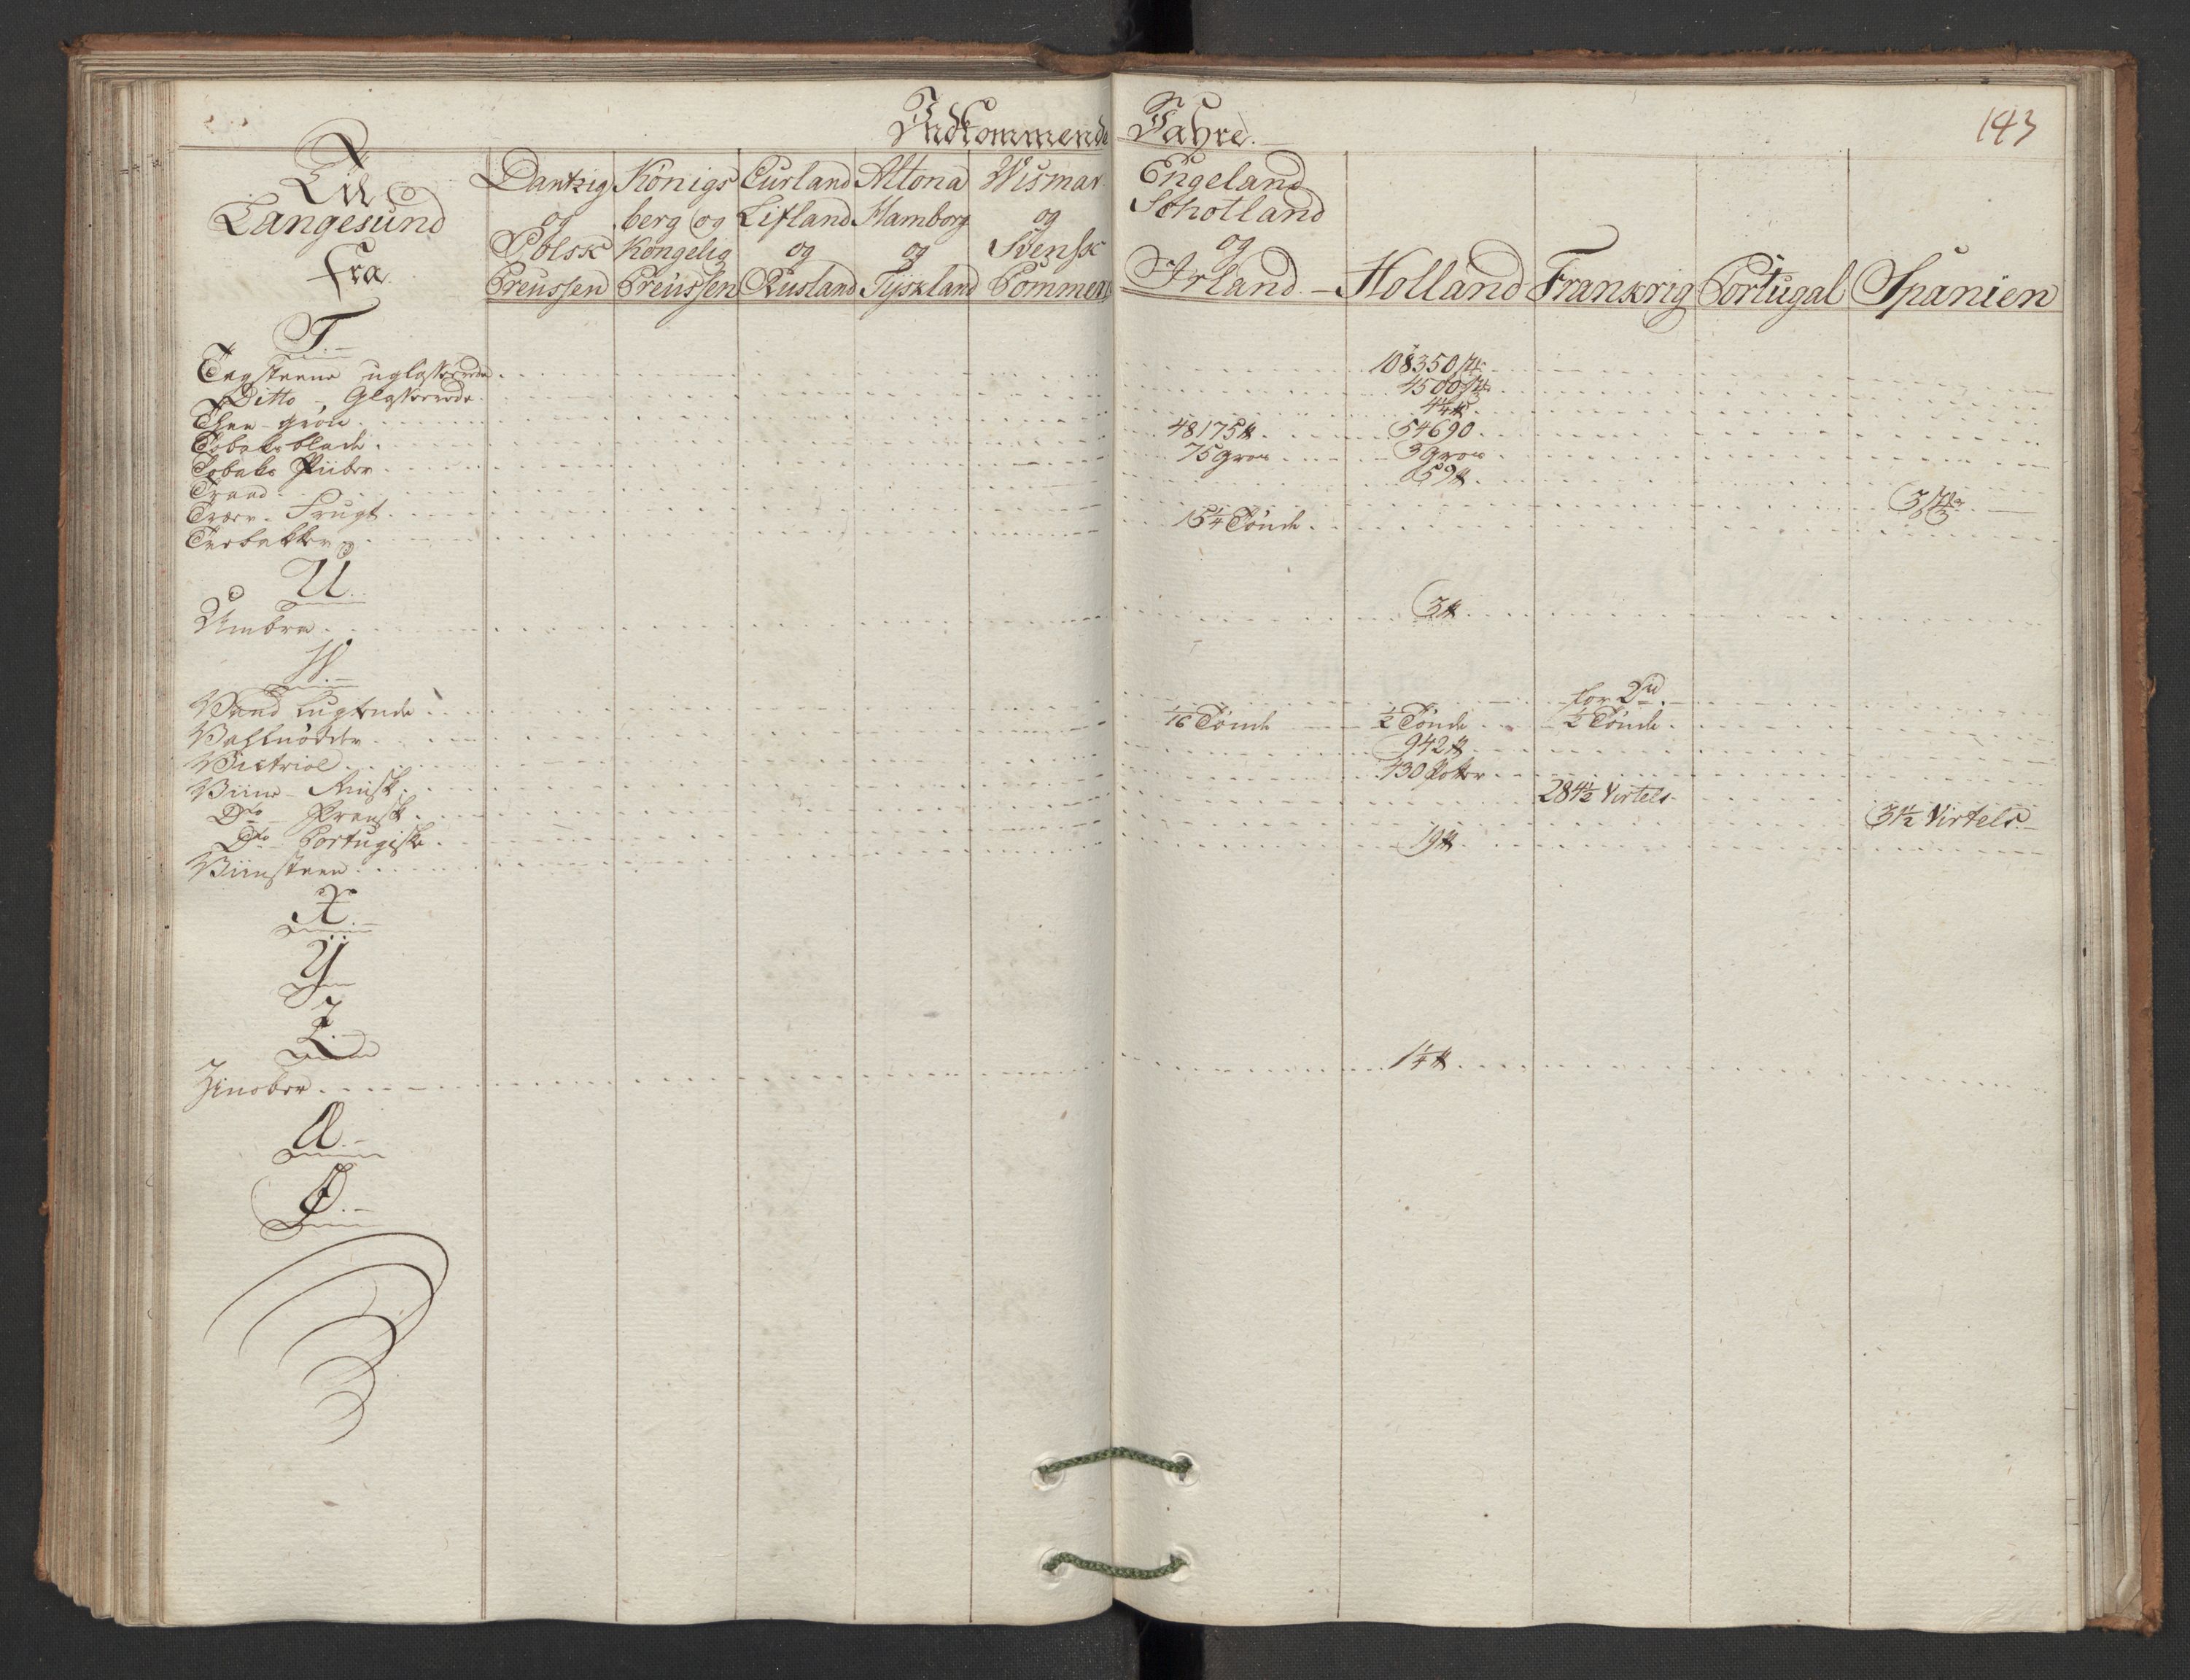 Indkommende Vahre.
143
Til
Langesund
fra
Dantzig
og
Polsk
Preussen
Königs
berg og
Kongelig
Preussen
Curland
Lifland
og
Rusland
Altona
Hamborg
og
Tyskland
Wismar
og
Svensk
Pommern
Engeland
Schotland
og
Irland.
Holland
Frankrig
Portugal
Spanien
T.
Tagsteene uglasserede 108350 St.
Ditto - Glasserede 4500 St.
Thee - grøn 4¼ ℔.
Tobaks blade 48175 ℔. 54690.
Tobaks Piiber 75 gros 3 gros
Traad 59 ℔.
Træer. Frugt 3 St.
Tvebakker 15¼ Tønde.
U.
Umbra 3 ℔
W.
Vand lugtende for 2 rd.
Valnødder 1/16 Tønde ½ Tønde ½ Tønde.
Victriol 942 ℔
Viine - Rinsk 430 Potter
Do - Fransk 284½ Virtels.
Do - Portugiske 31½ Virtels.
Viinsteen 19 ℔
X.
Y
Z.
Zinober 1¼ ℔.
Æ.
Ø.